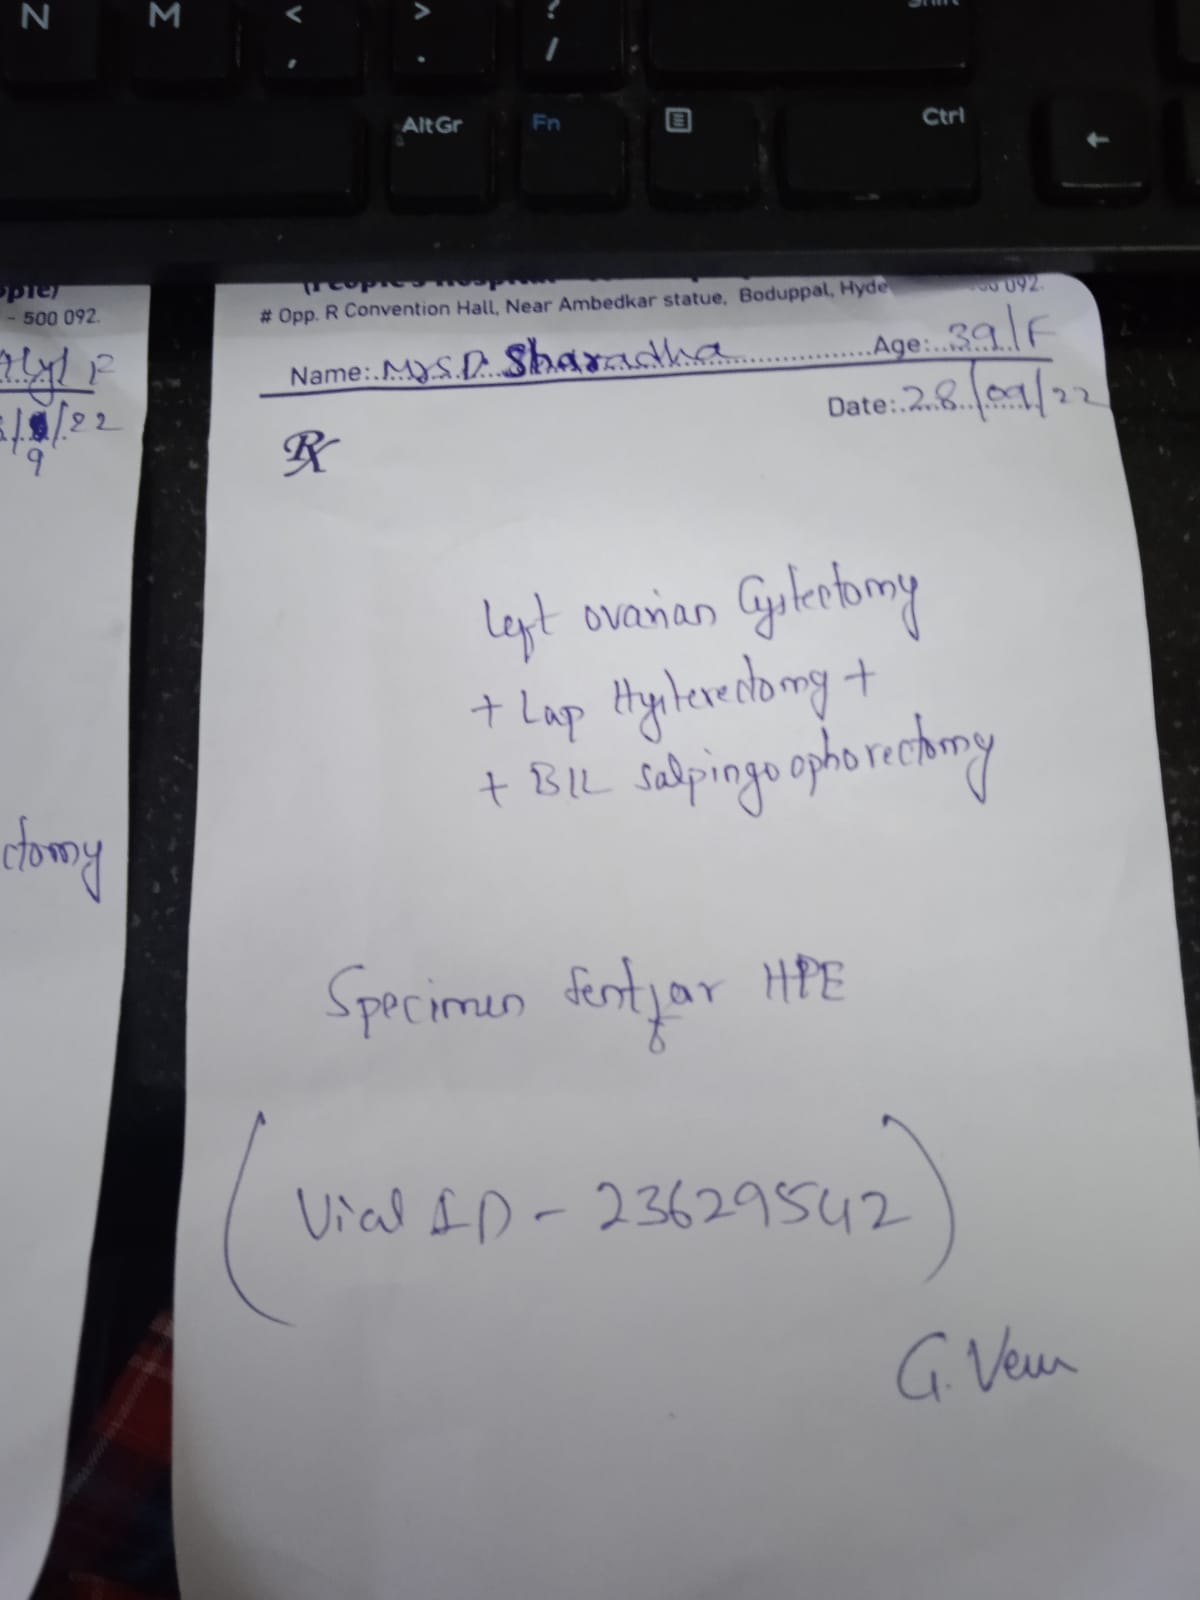 N M < , > . ? / Shift
AltGr Fn Ctrl ←
# Opp. R Convention Hall, Near Ambedkar statue, Boduppal, Hyde 092.
Name: Mrs D. Sharadha Age: 39/F
Date: 28/09/22
Rx
Left ovarian Cystectomy
+ Lap Hysterectomy +
+ B/L salpingo ophorectomy
Specimen sent for HPE
(Vial ID - 23629542)
G. Venu
- 500 092.
/22
9
ctomy